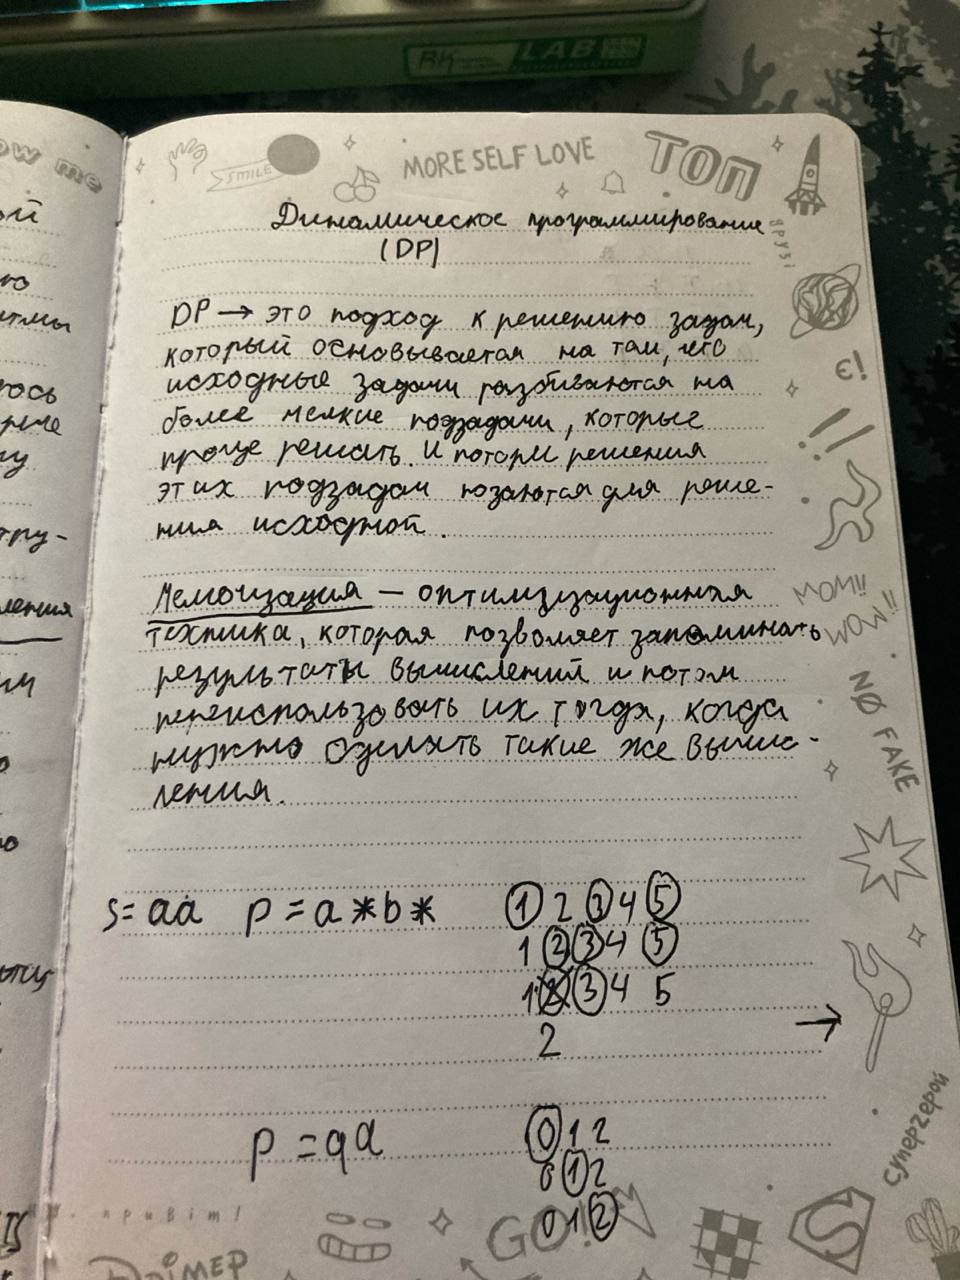 RK LAB
ow me
SMILE
MORE SELF LOVE
ТОП
друзі
Динамическое программирование
(DP)
DP → это подход к решению задач,
который основывается на том, что
исходные задачи разбиваются на
более мелкие подзадачи, которые
проще решать. И потом решения
этих подзадач юзаются для реше-
ния исходной.
Є!
!!
Мемоизация — оптимизационная
техника, которая позволяет запоминать
результаты вычислений и потом
переиспользовать их тогда, когда
нужно сделать такие же вычис-
ления.
МОМ!!
WOW!!
NO FAKE
s=aa p=a*b* 1 2 3 4 5
1 2 3 4 5
1 2 3 4 5
2
→
p=aa 0 1 2
0 1 2
0 1 2
супергерой
S
привіт!
GO!